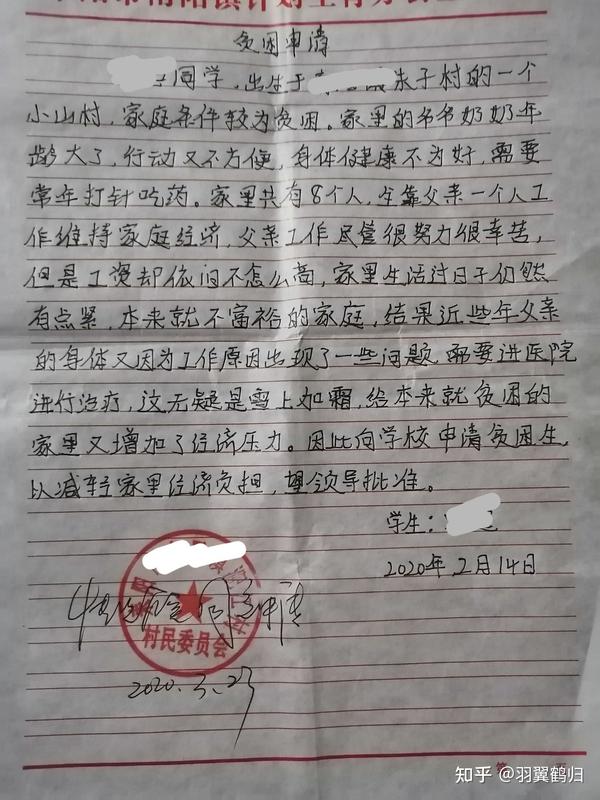 贫困申请
同学，出生于 朱子村的一个
小山村，家庭条件较为贫困。家里的爷爷奶奶年
龄大了，行动又不方便，身体健康不为好，需要
常年打针吃药。家里共有8个人，全靠父亲一个人工
作维持家庭经济，父亲工作尽管很努力很幸苦，
但是工资却依旧不怎么高，家里生活过日子仍然
有点紧，本来就不富裕的家庭，结果近些年父亲
的身体又因为工作原因出现了一些问题，需要进医院
进行治疗，这无疑是雪上加霜，给本来就贫困的
家里又增加了经济压力。因此向学校申请贫困生，
以减轻家里经济负担，望领导批准。
学生：
2020年2月14日
村民委员会
2020.3.23
知乎 @羽翼鹤归